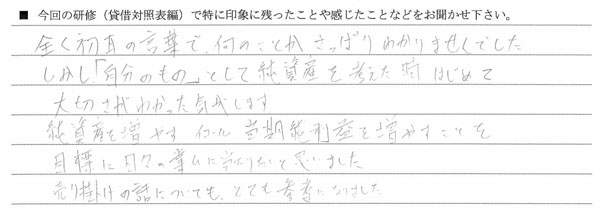 ■ 今回の研修（貸借対照表編）で特に印象に残ったことや感じたことなどをお聞かせ下さい。
全く初耳の言葉で、何のことか さっぱりわかりませんでした
しかし、「自分のもの」として純資産を考えた時 はじめて
大切さがわかった気がします
純資産を増やす イコール 当期純利益を増やすことを
目標に日々の業ムに当たりたいと思いました
売り掛けの話についても、とても参考になりました